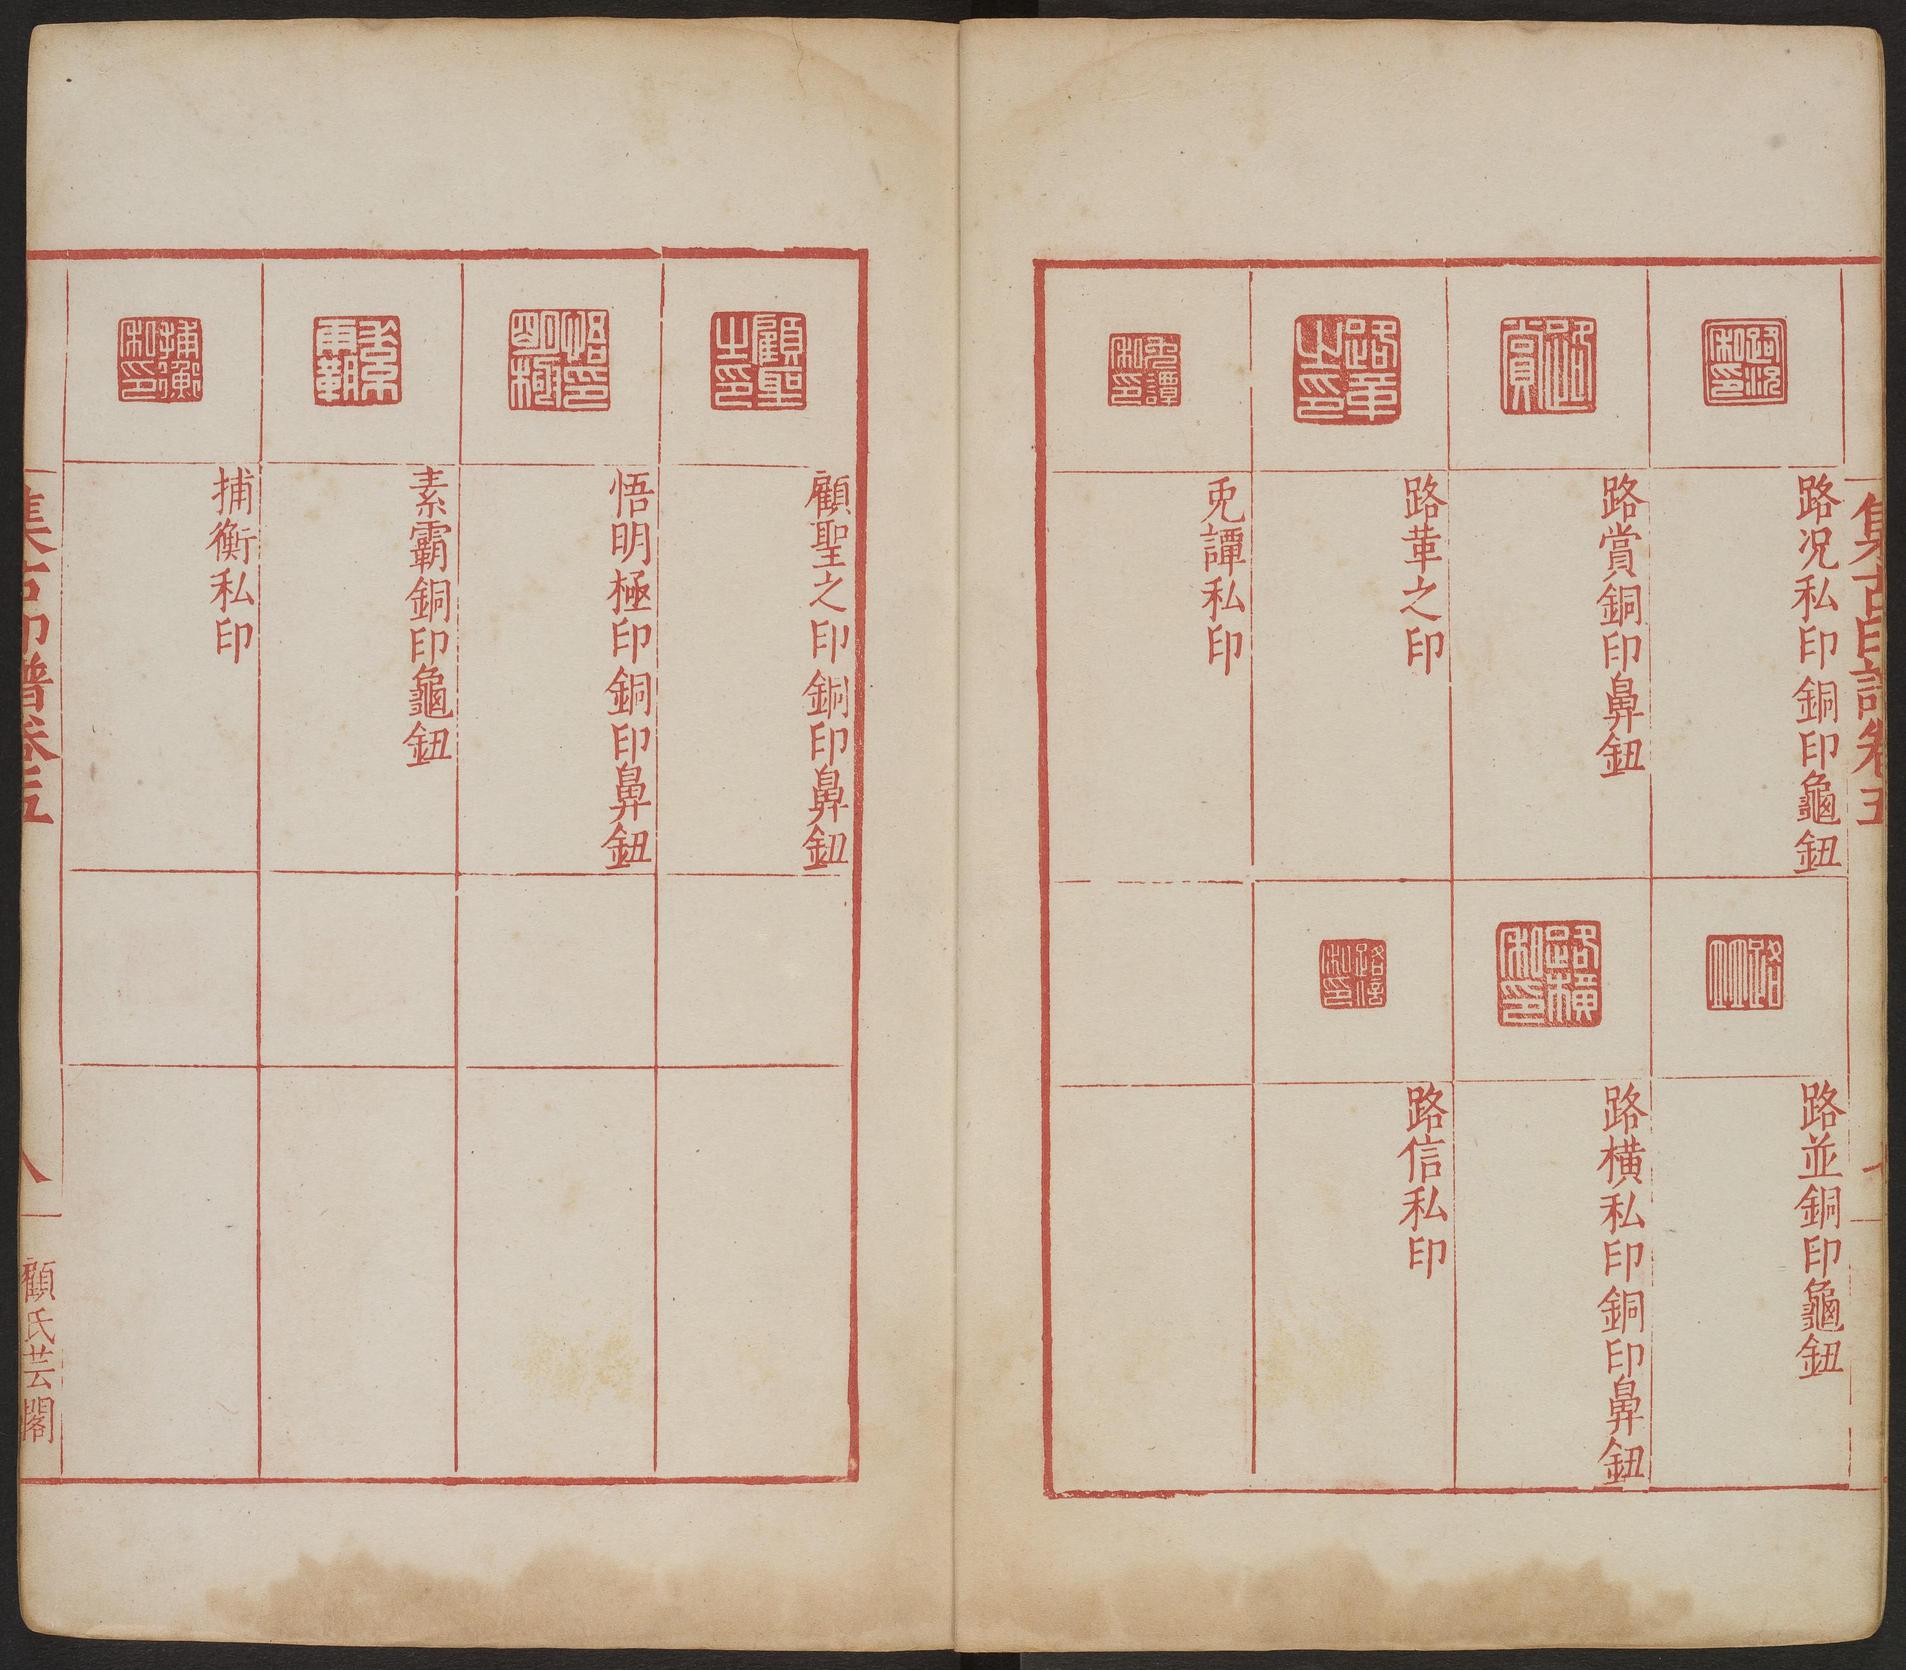 集古印譜卷五
路况私印銅印龜鈕
路並銅印龜鈕
路賞銅印鼻鈕
路橫私印銅印鼻鈕
路革之印
路信私印
兎譚私印
顧聖之印銅印鼻鈕
悟明極印銅印鼻鈕
素霸銅印龜鈕
捕衡私印
集古印譜卷五
八
顧氏芸閣